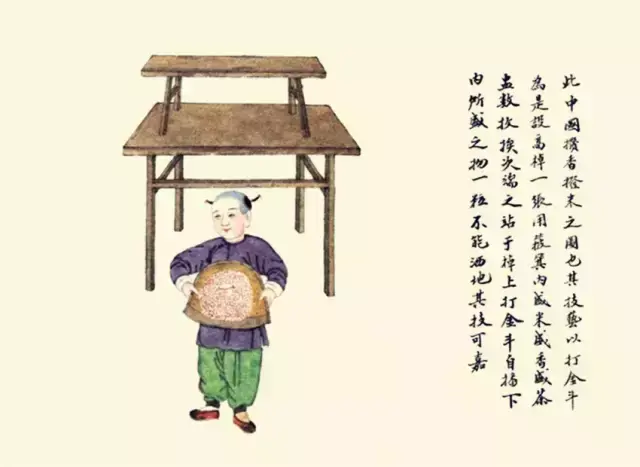 此中國攢香撥米之圖也其技藝以打金斗
為是設高棹一張用簸箕內盛米盛香盛茶
盅数枚挨次端之站于棹上打金斗自下
內所盛之物一粒不能洒地其技可嘉